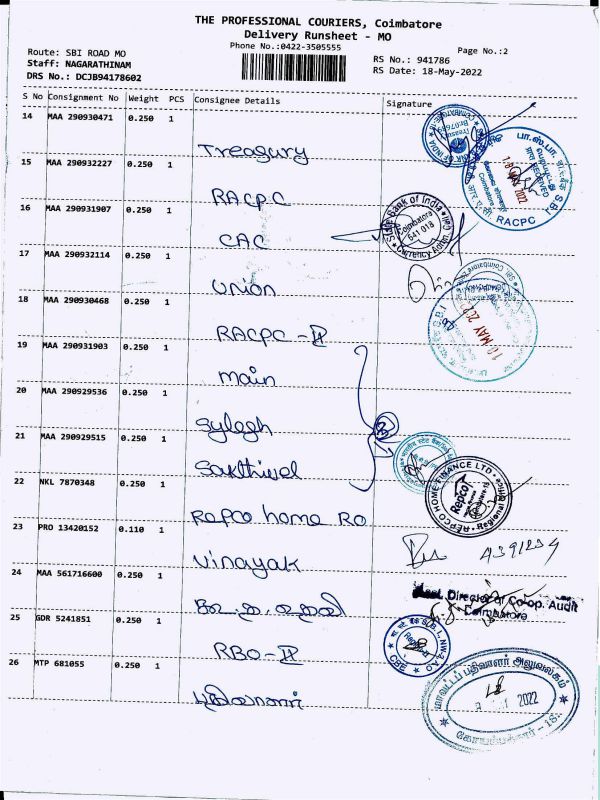 THE PROFESSIONAL COURIERS, Coimbatore
Delivery Runsheet - MO
Phone No.:0422-3505555
Page No.:2
Route: SBI ROAD MO
Staff: NAGARATHINAM
DRS No.: DCJB94178602
RS No.: 941786
RS Date: 18-May-2022
S No Consignment No Weight PCS Consignee Details Signature
14 MAA 290930471 0.250 1 Treasury
15 MAA 290932227 0.250 1 RACPC
16 MAA 290931907 0.250 1 CAC
17 MAA 290932114 0.250 1 Union
18 MAA 290930468 0.250 1 RACPC - II
19 MAA 290931903 0.250 1 main
20 MAA 290929536 0.250 1
21 MAA 290929515 0.250 1 Sakthivel
22 NKL 7870348 0.250 1 Repco home RO
23 PRO 13420152 0.110 1 Vinayak
24 MAA 561716600 0.250 1
25 GDR 5241851 0.250 1 RBO - II
26 MTP 681055 0.250 1
RACPC
State Bank of India
Coimbatore
641 018
REPCO HOME FINANCE LTD
Repco
Asst. Director of Co-op. Audit
Coimbatore